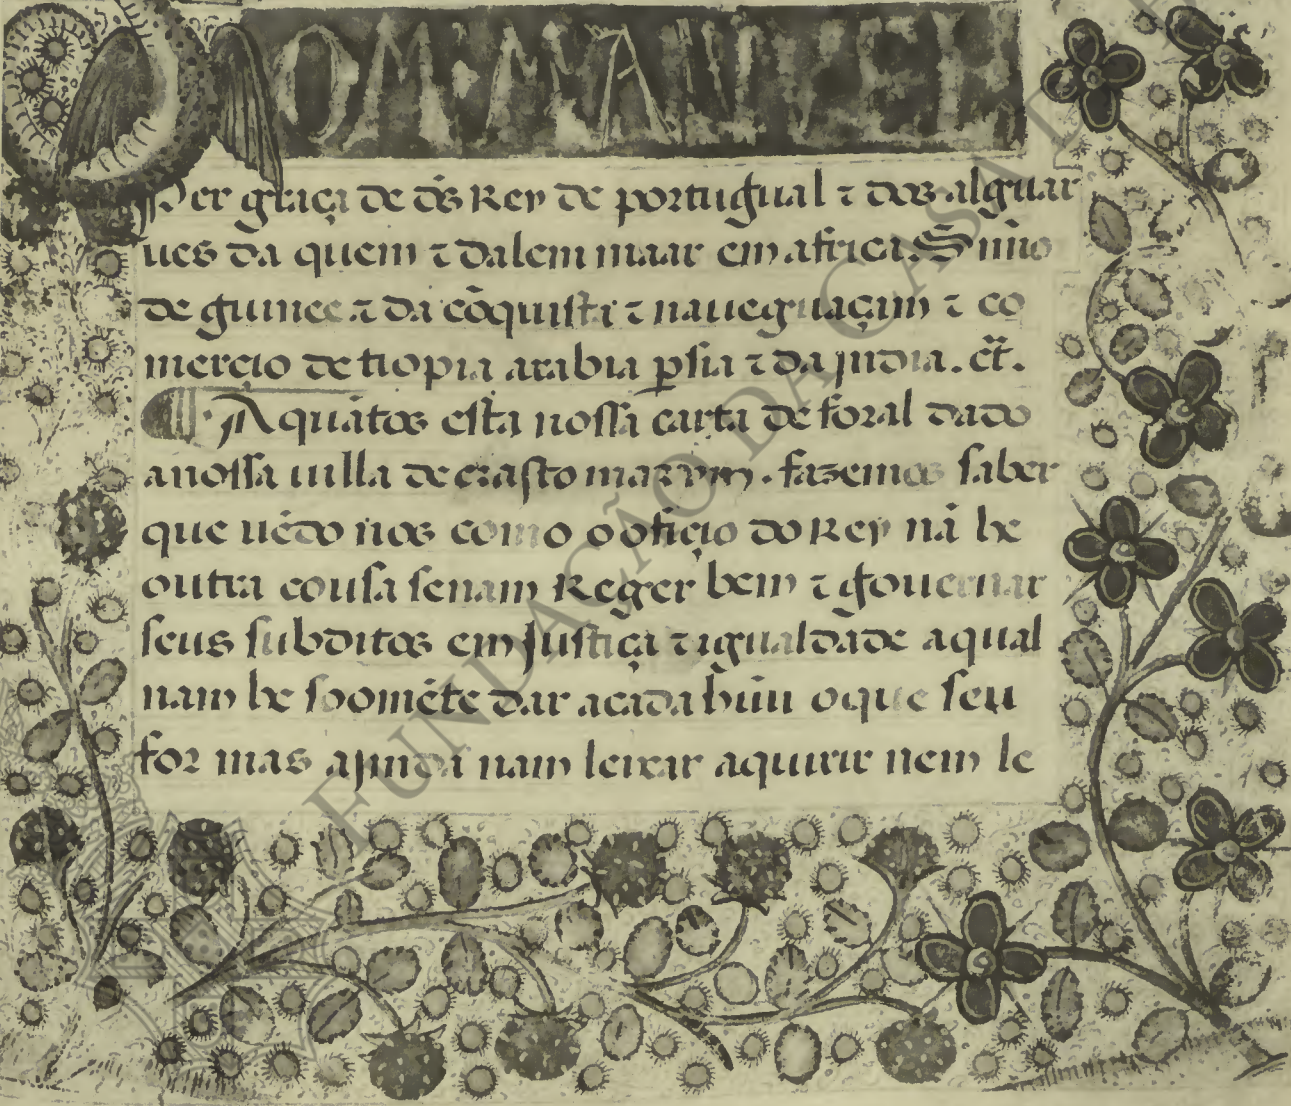 DOM MANUEL
Per graça de d̃s Rey de portugual ⁊ dos alguar
ues da quem ⁊ dalem maar em africa. Sñnor
de guinee ⁊ da cõquista ⁊ naueguaçam ⁊ co
merçio de tiopia arabia ꝑsia ⁊ da jndia. ct̃.
¶ A quãtos esta nossa carta de foral dado
a nossa uilla de crasto marym. fazemos saber
que uẽdo nos como o ofiçio do Rey nã he
outra cousa senam Reger bem ⁊ gouernar
seus subditos em justiça ⁊ igualdade a qual
nam he soomẽte dar a cada hũu o que seu
for mas ajnda nam leixar aquirir nem le
FUNDAÇÃO DA CASA D